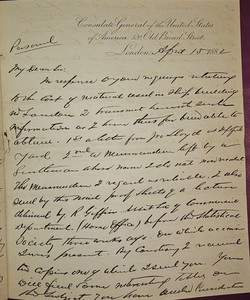 Consulate General of the United States
of America. 53 Old Broad Street,
London, April 15 1882
Personal
My Dear Sir:
In response to your inquiry relating
to the cost of material used in Ship building
in London I transmit herewith such
information as I have thus far been able to
obtain. 1st a lot from
yard. 2nd a Memorandum left by a
Gentleman whose name I do not now
this Memorandum I regard as reliable. I also
send by this mail proof sheets of a lecture
delivered by R. Giffen of Commercial
department (Home Office) before the Statistical
Society three weeks ago on which occasion
I was present. By Courtesy I received
two copies one of which I send you. You
will find some interesting tables on
the subject you have under